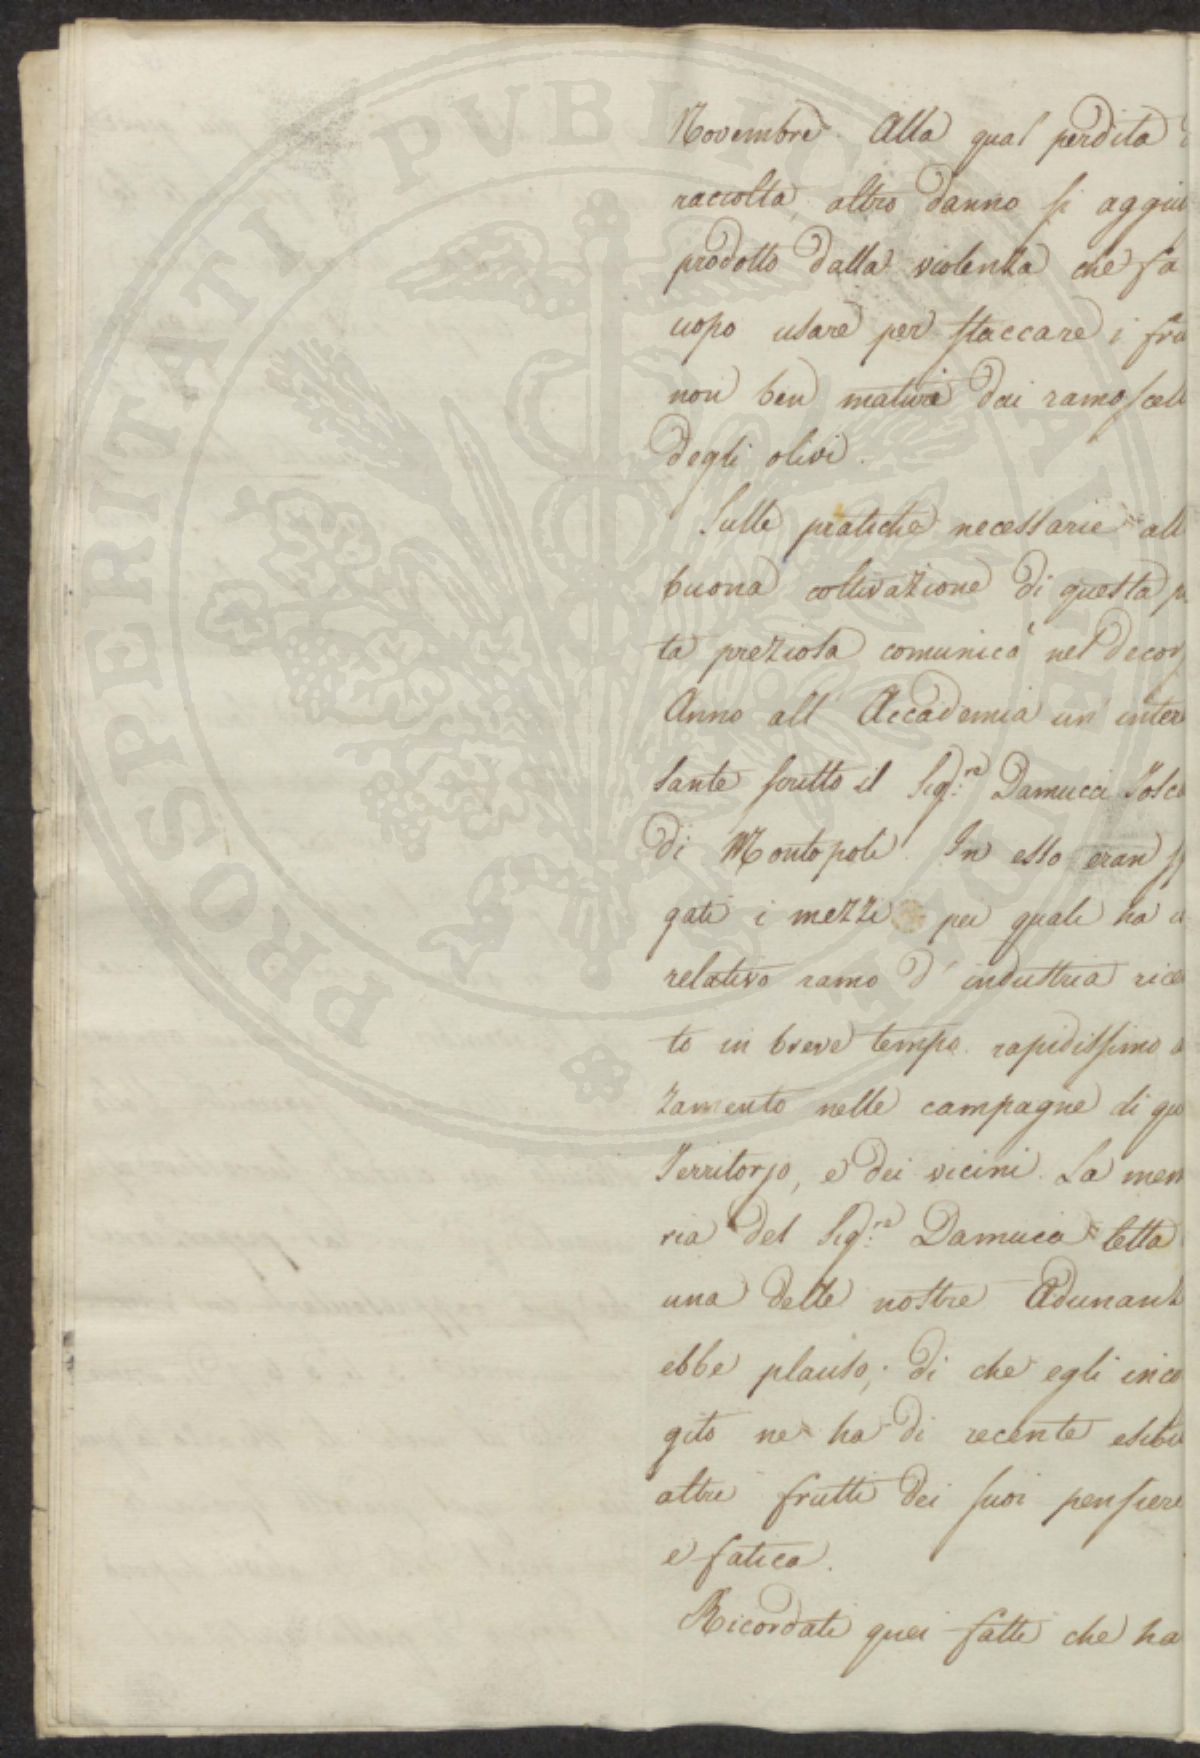 PROSPERITATI PVBLICAE AVGENDAE
Novembre. Alla qual perdita
raccolta, altro danno si aggiu
prodotto dalla violenza che fa
uopo usare per staccare i fru
non ben maturi dai ramoscell
degli olivi.
Sulle pratiche necessarie all
buona coltivazione di questa p
ta preziosa comunicò nel decor
Anno all' Accademia un' inter
sante scritto il Sig:re Damucci Tosca
di Montopoli. In esso eran sp
gati i mezzi pei quali ha
relativo ramo d' industria rice
to in breve tempo rapidissimo a
zamento nelle campagne di que
Territorjo, e dei vicini. La mem
ria del Sig:re Damucci letta
una delle nostre Adunanz
ebbe plauso; di che egli inco
gito ne ha di recente esibi
altri frutti dei suoi pensieri
e fatica.
Ricordati quei fatti che ha